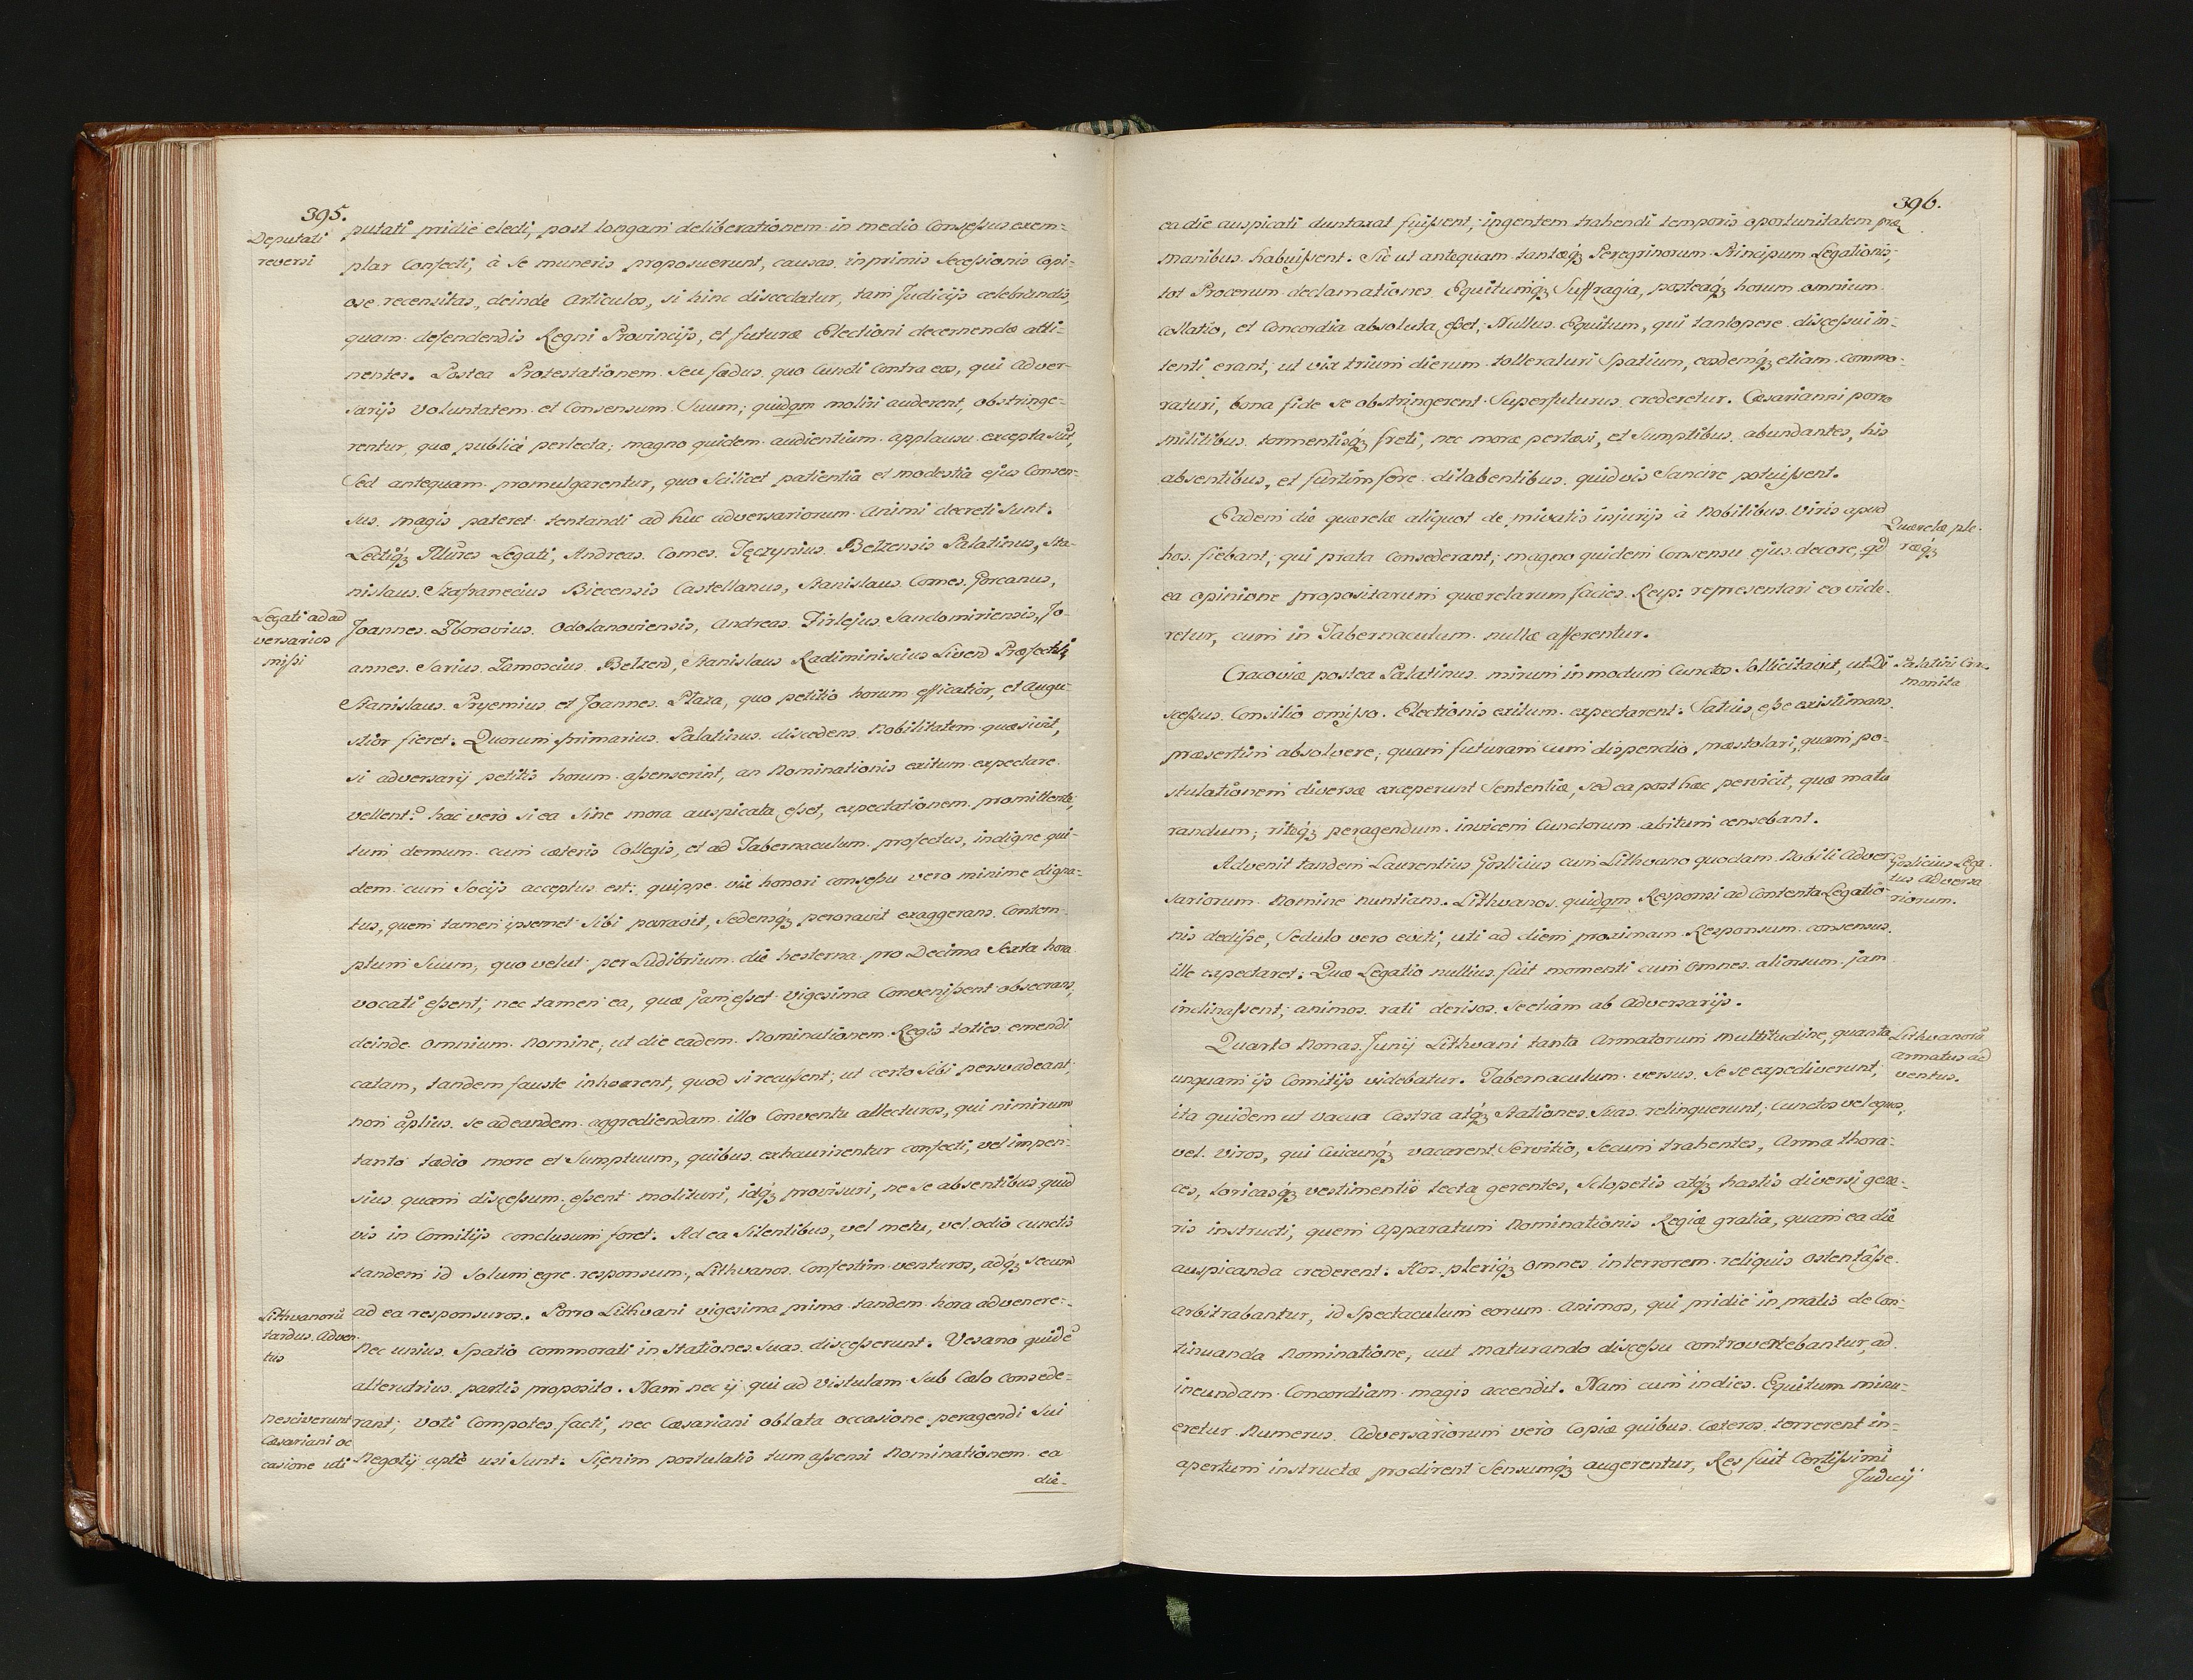 395.
Deputati
reversi
putati pridie electi, post longam deliberationem in medio Consessus exem-
plar Confecti, à se muneris proposuerunt, causas inprimis secessionis Copi-
ose recensitas, deinde Articulos, si hinc discedatur, tam Judicijs celebrandis,
quam defendendis Regni Provincijs, et futuræ Electioni decernendæ atti-
nentes. Postea Protestationem seu fædus quo Cuncti Contra eos, qui Adver-
sarijs voluntatem et Consensum Suum; quidqm moliri auderent, obstringe-
rentur, quæ publicè perlecta; magno quidem audientium applausu excepta sūt,
Sed antequam promulgarentur, quo Scilicet patientia et modestia ejus Consen-
sus magis pateret tentandi ad huc adversariorum Animi decreti Sunt.
Lectiq́ꝫ Illūres Legati, Andreas Comes Tęczynius Belzensis Palatinus, Sta-
nislaus Szafranecius Biecensis Castellanus, Stanislaus Comes Gorcanus,
Legati ad ad
versarios
missi
Joannes Zborovius Odolanoviensis, Andreas Firlejus Sandomiriensis, Jo-
annes Sarius Zamoscius Belzen, Stanislaus Radiminiscius Liven Præfecti,
Stanislaus Pryemius et Joannes Plaza, quo petitio horum efficatior, et Augu-
stior fieret. Quorum primarius Palatinus discedens Nobilitatem quæsivit,
si adversarij petitis horum assenserint, an Nominationis exitum expectare
vellent? hac verò si ea Sine mora auspicata esset, expectationem promittente,
tum demum cum cæteris Collegis, et ad Tabernaculum profectus, indigne qui-
dem cum Socijs acceptus est: quippe vix honori consessu vero minime digna-
tus, quem tamen ipsemet Sibi paravit, Sedensq́ꝫ peroravit exaggerans Contem-
ptum Suum, quo velut per Ludibrium die hesterna pro Decima Sexta hora
vocati essent; nec tamen ea, quæ jam esset vigesima Convenissent obsecrans,
deinde Omnium Nomine, ut die eadem Nominationem Regis toties emendi
catam, tandem fauste inhoarent, quod si recusent; ut certo Sibi persvadeant,
non āplius se ad eandem aggrediendam illo Conventu allecturos, qui nimirum
tanto tædio more et Sumptuum, quibus exhaurirentur confecti, vel impen-
sius quam discessum essent molituri, idq́ꝫ provisuri, ne se absentibus quid
vis in Comitijs conclusum foret. Ad ea Silentibus, vel metu, vel odio cunctis
tandem id Solum egre responsum, Lithvanos Confestim venturos, adq́ꝫ secum
Lithvanorū
tardus Adven
tus
ad ea responsuros. Porro Lithvani vigesima prima tandem hora advenere-
Nec unius Spatio commorati in Stationes Suas discesserunt. Vesano quidē
alterutrius partis proposito. Nam nec ij qui ad Vistulam Sub Cælo consede-
Nesciverunt
Cæsariani oc
casione uti
rant; voti Compotes facti, nec Cæsariani oblata occasione peragendi Sui
Negotij aptè usi Sunt: Si enim postulatis tum assensi Nominationem ea
die-
396.
ea die auspicati duntaxat fuissent, ingentem trahendi temporis oportunitatem præ
manibus habuissent. Sic ut antequam tantæq́ꝫ Peregrinorum Principum Legationis,
tot Procerum declamationes Equitumq́ꝫ Suffragia, posteaq́ꝫ horum omnium
Collatio, et Concordia absoluta esset, Nullus Equitum, qui tantopere discessui in-
tenti erant, ut vix trium dierum tolleraturi Spatium, eosdemq́ꝫ etiam commo-
raturi, bona fide se obstringerent Superfuturus crederetur. Cæsarianni porro
militibus tormentisq́ꝫ freti, nec moræ pertæsi, et Sumptibus abundantes, his
absentibus, et furtim fore dilabentibus quidvis Sancire potuissent.
Eadem die quærelæ aliquot de privatis injurijs à Nobilibus Viris apud
Quærelæ ple-
ræq́ꝫ
hos fiebant, qui prata Consederant, magno quidem Consensu ejus decore, qd
ea opinione propositarum quærelarum facies Reip: representari eo vide-
retur, cum in Tabernaculum nullæ afferentur.
Cracoviæ postea Palatinus mirum in modum Cunctos Sollicitavit, ut Di
Palatini Com-
monita
scessus Consilio omisso Electionis exitum expectarent: Satius esse existimans
præsertim absolvere, quam futuram cum dispendio præstolari, quam po-
stulationem diversæ exceperunt Sententiæ, sed ea post hæc pervicit, quæ matu
randum, riteq́ꝫ peragendum invicem Cunctorum abitum censebant.
Advenit tandem Laurentius Goslicius cum Lithvano quodam Nobili Adver
Goslicius Lega-
tus Adversa
riorum.
sariorum Nomine nuntians Lithvanos quidqm Responsi ad Contenta Legatio-
nis dedisse, Sedulo vero eniti, uti ad diem proximam Responsum consensus
ille expectaret: Quæ Legatio nullius fuit momenti cum Omnes aliorsum jam
inclinassent; animos rati derisos se etiam ab Adversarijs.
Quarto Nonas Junij Lithvani tanta Armatorum multitudine, quanta
Lithvanorū
armatus ad
ventus.
unquam ijs Comitijs videbatur. Tabernaculum versus se se expediverunt,
ita quidem ut vacua Castra atq́ꝫ Stationes Suas relinquerunt, cunctos vel equos,
vel Viros, qui Cuicunq́ꝫ vacarent Servitio, Secum trahentes, Arma thora-
ces, loricasq́ꝫ vestimentis tecta gerentes, Sclopetis atq́ꝫ hastis diversi gene-
ris instructi, quem Apparatum Nominationis Regiæ gratia, quam ea die
auspicanda crederent. Hos pleriq́ꝫ Omnes in terrorem reliquis Ostentâsse
arbitrabantur, id Spectaculum eorum Animos, qui pridie in pratis de Con-
tinuanda Nominatione, aut maturando discessu controvertebantur, ad
ineundam Concordiam magis accendit. Nam cum indies Equitum minu-
eretur Numerus Adversariorum verò Copiæ quibus Cæteros terrerent in-
apertum instructæ prodirent Sensumq́ꝫ augerentur, Res fuit Certissimi
Judicij